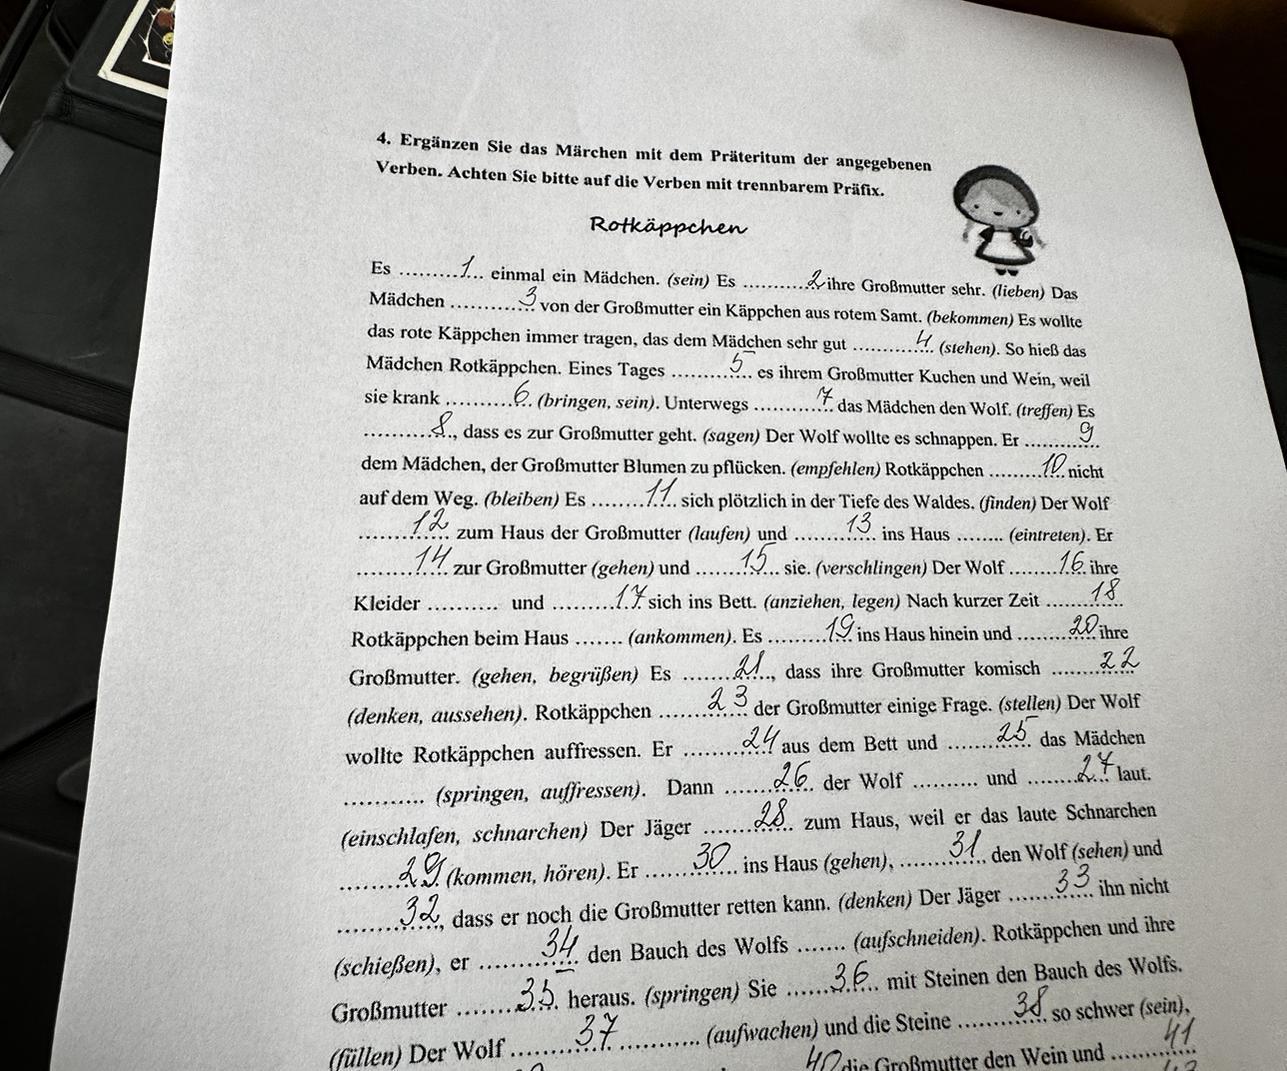 4. Ergänzen Sie das Märchen mit dem Präteritum der angegebenen
Verben. Achten Sie bitte auf die Verben mit trennbarem Präfix.
Rotkäppchen
Es .........1... einmal ein Mädchen. (sein) Es ..........2 ihre Großmutter sehr. (lieben) Das
Mädchen ..........3.. von der Großmutter ein Käppchen aus rotem Samt. (bekommen) Es wollte
das rote Käppchen immer tragen, das dem Mädchen sehr gut ..........4.. (stehen). So hieß das
Mädchen Rotkäppchen. Eines Tages .........5... es ihrem Großmutter Kuchen und Wein, weil
sie krank ..........6.. (bringen, sein). Unterwegs .........7.. das Mädchen den Wolf. (treffen) Es
..........8.., dass es zur Großmutter geht. (sagen) Der Wolf wollte es schnappen. Er ........9..
dem Mädchen, der Großmutter Blumen zu pflücken. (empfehlen) Rotkäppchen ........10.. nicht
auf dem Weg. (bleiben) Es ........11.. sich plötzlich in der Tiefe des Waldes. (finden) Der Wolf
........12.. zum Haus der Großmutter (laufen) und ........13.. ins Haus ........ (eintreten). Er
........14.. zur Großmutter (gehen) und .......15... sie. (verschlingen) Der Wolf ........16. ihre
Kleider .......... und .........17 sich ins Bett. (anziehen, legen) Nach kurzer Zeit .......18....
Rotkäppchen beim Haus ....... (ankommen). Es ........19.. ins Haus hinein und ........20.. ihre
Großmutter. (gehen, begrüßen) Es .......21..., dass ihre Großmutter komisch .......22....
(denken, aussehen). Rotkäppchen .......23.... der Großmutter einige Frage. (stellen) Der Wolf
wollte Rotkäppchen auffressen. Er .........24.. aus dem Bett und ........25.. das Mädchen
........... (springen, auffressen). Dann .......26... der Wolf .......... und ........27.. laut.
(einschlafen, schnarchen) Der Jäger .......28.... zum Haus, weil er das laute Schnarchen
........29.. (kommen, hören). Er ........30... ins Haus (gehen), ........31.. den Wolf (sehen) und
........32.., dass er noch die Großmutter retten kann. (denken) Der Jäger .......33.... ihn nicht
(schießen), er .........34.. den Bauch des Wolfs ....... (aufschneiden). Rotkäppchen und ihre
Großmutter ........35... heraus. (springen) Sie .......36... mit Steinen den Bauch des Wolfs.
(füllen) Der Wolf .........37.. ........... (aufwachen) und die Steine ........38.. so schwer (sein),
40 die Großmutter den Wein und .........41..